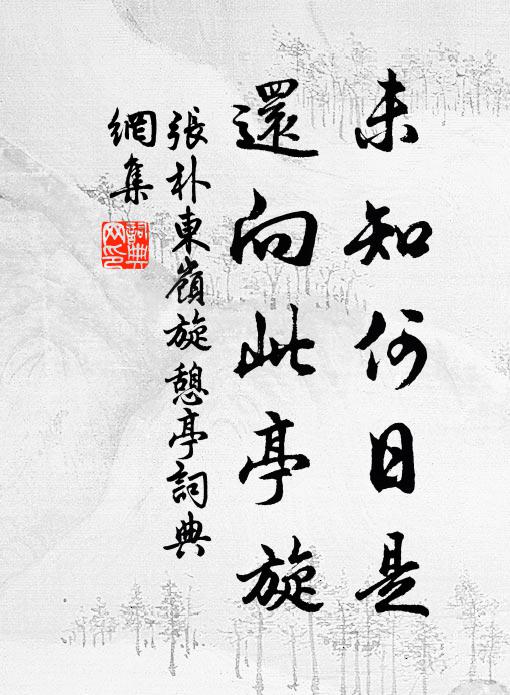 未知何日是
還向此亭旋
張朴東嶺旋憩亭詞典
網集
詞典
网印